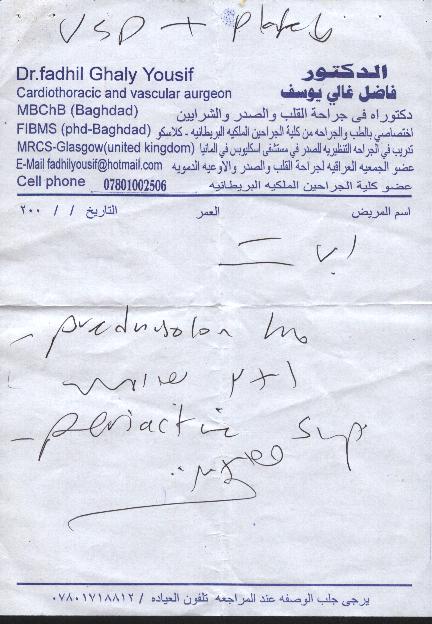 VSD +
Dr.fadhil Ghaly Yousif
الدكتور
Cardiothoracic and vascular surgeon
فاضل غالي يوسف
MBChB (Baghdad)
دكتوراه في جراحة القلب والصدر والشرايين
FIBMS (phd-Baghdad)
اختصاصي بالطب والجراحه من كلية الجراحين الملكيه البريطانيه - كلاسكو
MRCS-Glasgow(united kingdom)
تدريب في الجراحه التنظيريه للصدر في مستشفى اسكلبوس في المانيا
E-Mail fadhilyousif@hotmail.com
عضو الجمعيه العراقيه لجراحة القلب والصدر والاوعيه الدمويه
Cell phone 07801002506
عضو كلية الجراحين الملكيه البريطانيه
اسم المريض العمر التاريخ / / ٢٠٠
- prednisolon
١×٢
- periactin syp
يرجى جلب الوصفه عند المراجعه تلفون العياده / ٠٧٨٠١٧١٨٨١٢